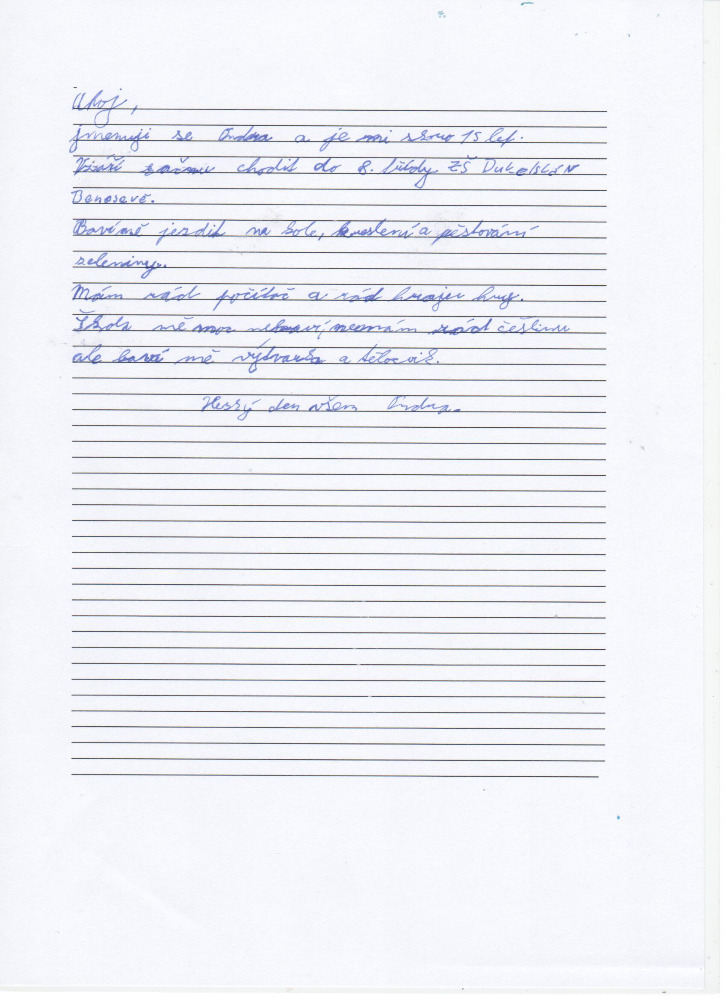 Ahoj,
jmenuji se Ondra a je mi skoro 15 let.
V září začnu chodit do 8. třídy ZŠ Dukelská v
Benesově.
Baví mě jezdit na kole, kreslení a pěstování
zeleniny.
Mám rád počítač a rád hraju hry.
Škola mě moc nebaví, nemám rád češtinu
ale baví mě výtvarka a tělocvik.
Hezký den všem Ondra.